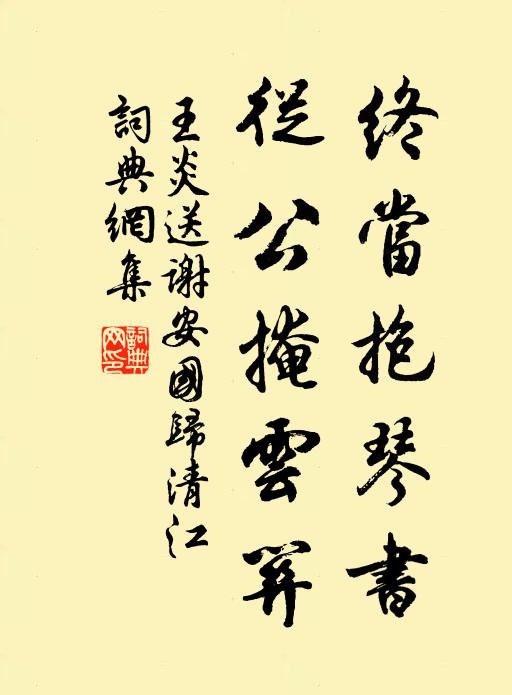 終當抱琴書
從公掩雲關
王炎送謝安國歸清江
詞典網集
詞典
网印